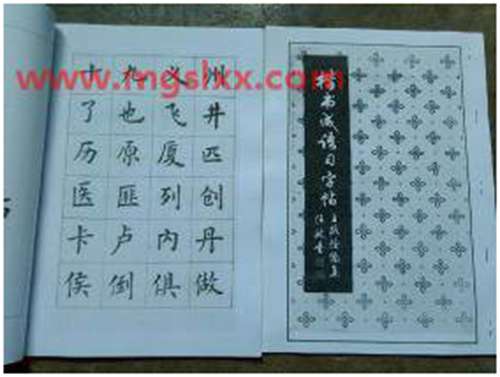 www.mgslxx.com
了也飞井
历原厦匹
医匪列创
卡卢内丹
侯倒俱做
楷书成语习字帖